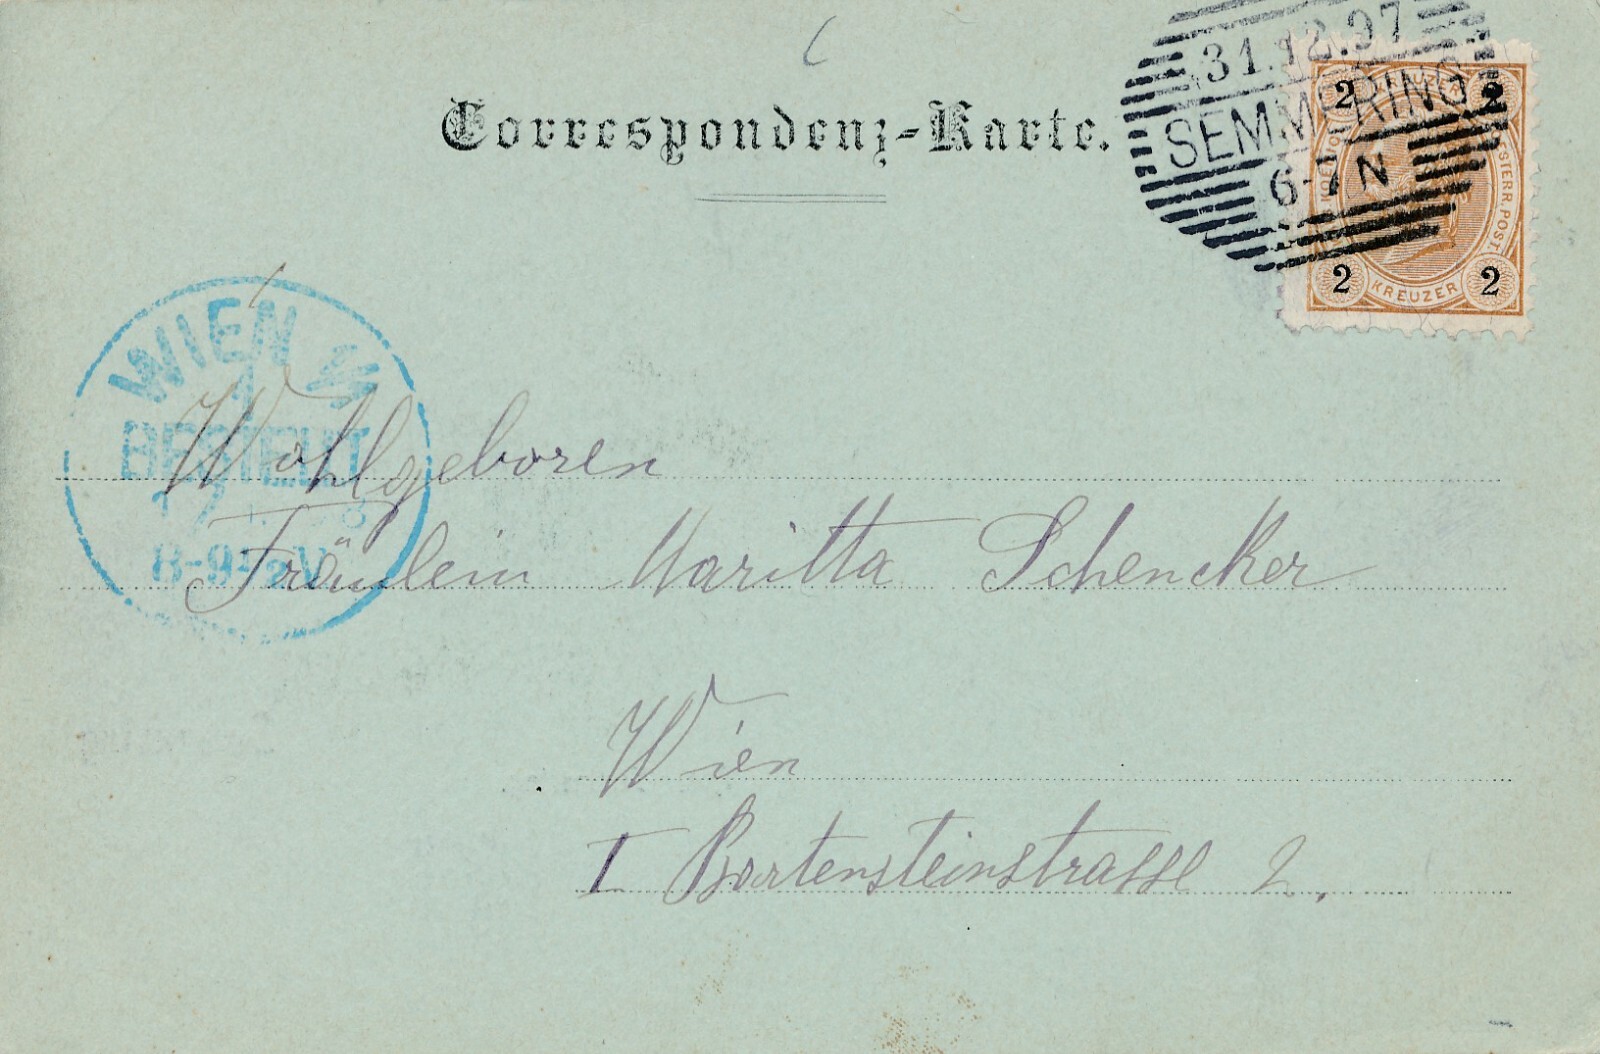 Correspondenz-Karte.
31.12.97
SEMMERING
6-7 N
2 2
KREUZER
2 2
WIEN
1
BESTELLT
8-9½V
Wohlgeboren
Fräulein Maritta Schencker
Wien
I Bartensteinstrasse 2.